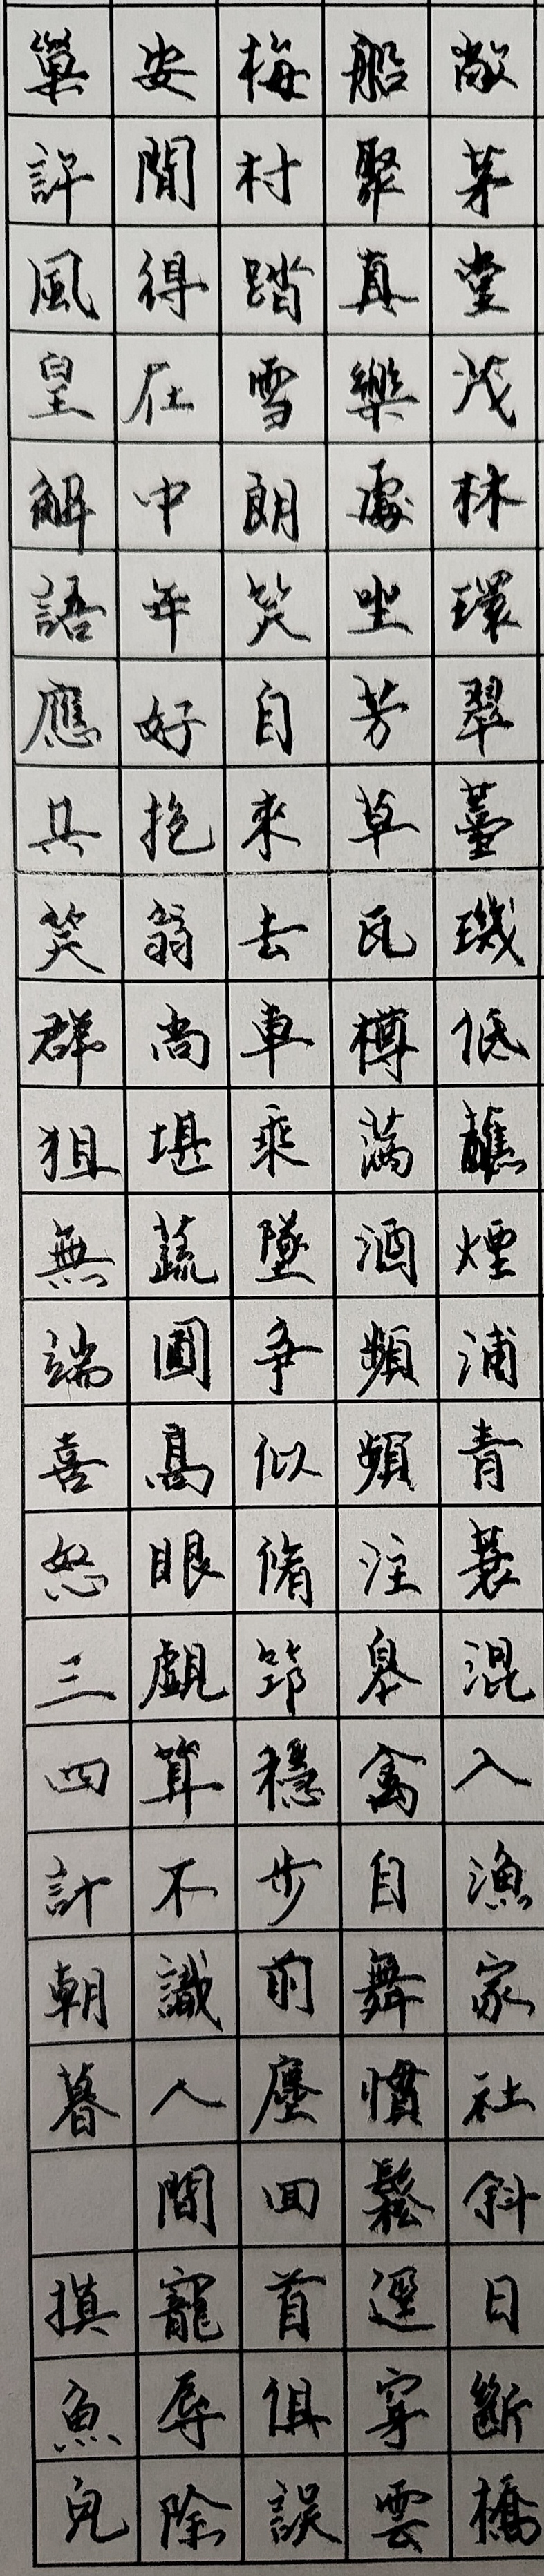 敞茅堂茂林環翠薹璣低蘸煙浦青蓑混入漁家社斜日斷橋
船聚真樂處坐芳草瓦樽滿酒頻頻注舉禽自舞慣鬆逕穿雲
梅村踏雪朗笑自來去車乘墜爭似脩筇穩步前塵回首俱誤
安閒得在中年好抱翁尚堪蔬圃高眼覷算不識人間寵辱除
巢許風皇解語應共笑群狙無端喜怒三四計朝暮 摸魚兒